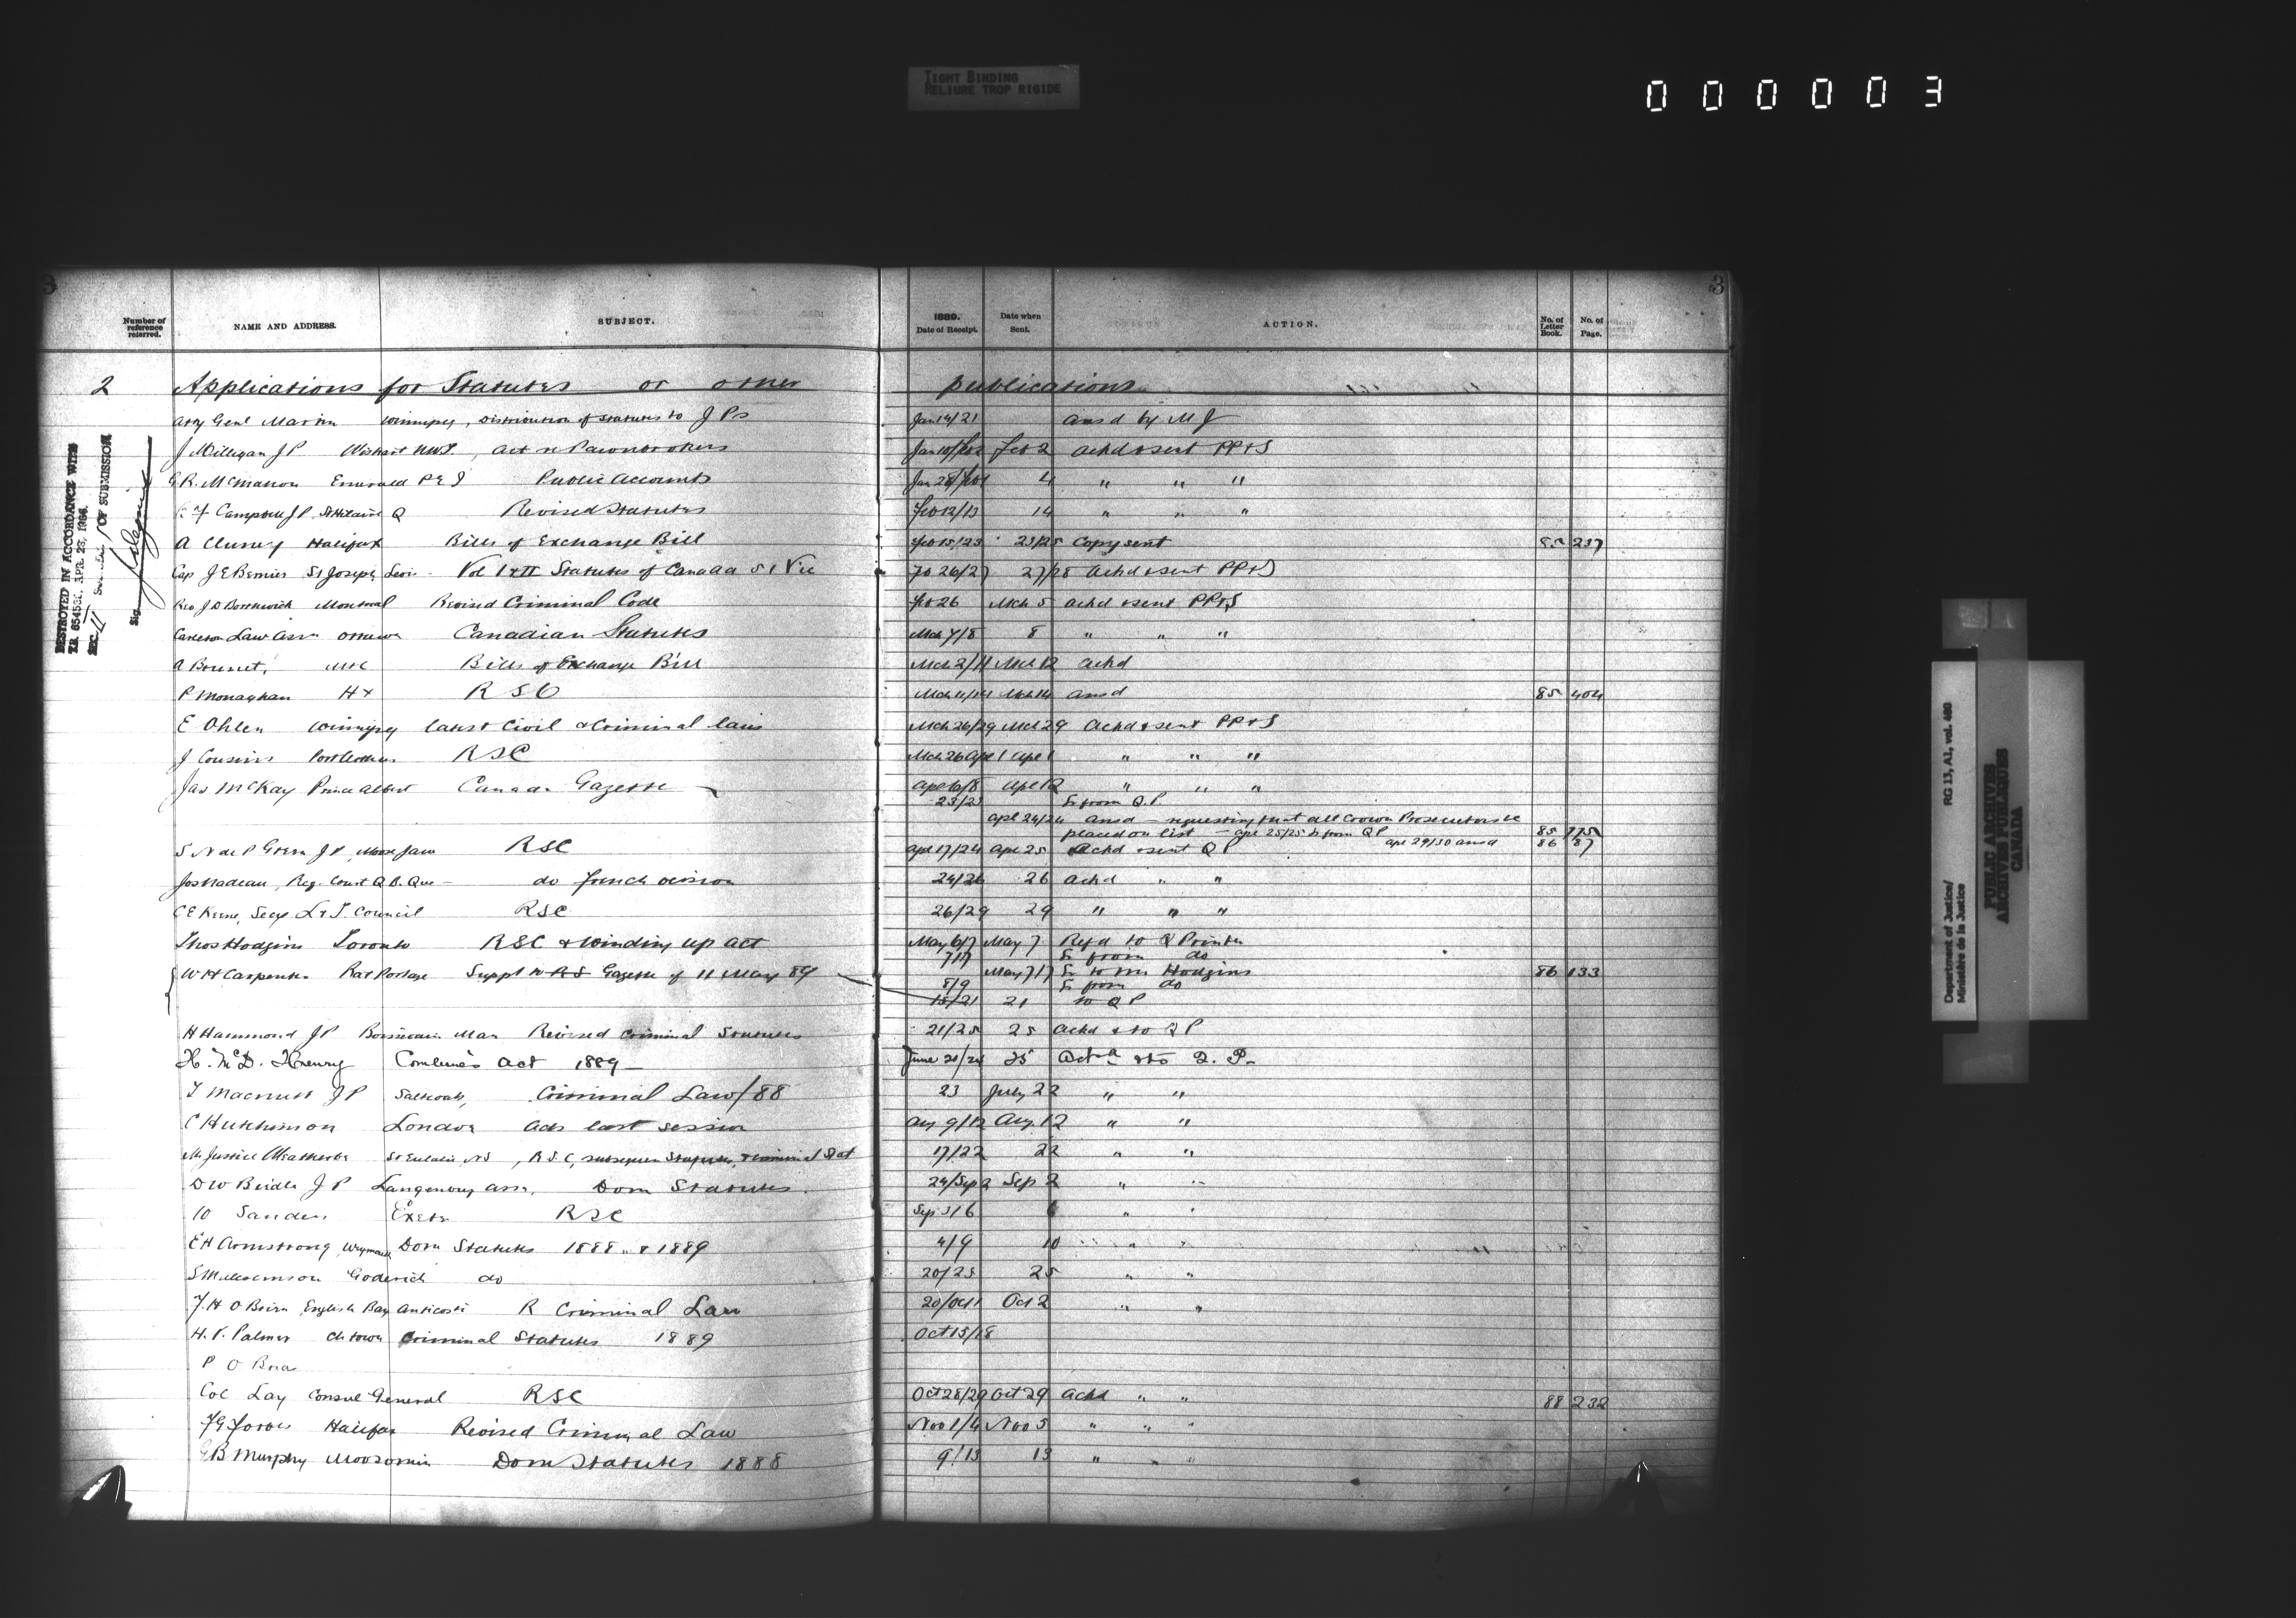 TIGHT BINDING
RELIURE TROP RIGIDE
000003
3 3
Number of reference referred. NAME AND ADDRESS. SUBJECT. 1889. Date of Receipt. Date when Sent. ACTION. No. of Letter Book. No. of Page.
2 Applications for Statutes or other publications
Atty Genl Martin Winnipeg, Distribution of statutes to J Ps Jan 14/21 ansd by M J
J Milligan J P Wishart NWT, act re Pawnbrokers Feb 2 ackd & sent PP&S
McMahon Emerald P E I Public Accounts 4 " " "
Campbell J.P. St Hilaire Q Revised Statutes Feb 12/13 14 " " "
A Cluney Halifax Bills of Exchange Bill Feb 15/23 23/25 Copy sent 85 237
Cap J E Bernier St Joseph Levis Vol I & II Statutes of Canada 51 Vic 26/27 27/28 ackd & sent PP&S
Rev J D Borthwick Montreal Revised Criminal Code Feb 26 Mch 5 ackd & sent PP&S
Carleton Law Assn Ottawa Canadian Statutes Mch 7/8 8 " " "
Bills of Exchange Bill Mch 2/11 Mch 12 ackd
P Monaghan Hx R S C Mch 11/14 Mch 14 ansd 85 404
E Ohlen Winnipeg latest Civil & Criminal laws Mch 26/29 Mch 29 Ackd & sent PP&S
J Cousins RSC Mch 26 Apl 1 Apl 1 " " "
Jas McKay Prince Albert Canada Gazette Apl 6/8 Apl 12 " " "
23/23 Fr from Q.P
Apl 24/24 ansd – requesting that all Crown Prosecutors be
placed on list – Apl 25/25 fr from QP 85 775
S N de P Green J P, Moose Jaw RSC Apl 17/24 Apl 25 Ackd & sent Q P Apl 29/30 ansd 86 87
Jos Nadeau, Reg. Court Q B. Que – do French version 24/26 26 Ackd " "
C E Keene, Secy L & T. Council RSC 26/29 29 " " "
Thos Hodgins Toronto RSC & Winding up act May 6/7 May 7 Refd to Q Printer
7/17 Fr from do
W H Carpenter Rat Portage Suppl to R S Gazette of 11 May 89 May 7/17 Fr to Mr Hodgins 86 133
8/9 Fr from do
18/21 21 to Q P
H Hammond J P Boissevain Man Revised Criminal Statutes 21/25 25 Ackd & to Q P
H. McD. Henry Combines Act 1889 – June 21/24 25 & to Q. P.
T Macnutt J P Saltcoats, Criminal Law/88 23 July 22 " "
C Hutchinson London Acts last session Aug 9/12 Aug 12 " "
Mr Justice Weatherbe St Eulalie NS, R.S.C, subsequent Statutes, & criminal Stat 17/22 22 " "
J P Langenburg Assa. Dom Statutes. 24/Sep 2 Sep 2 " "
Sanders Exeter RSC Sep 3/6 6 " "
E H Armstrong, Weymouth Dom Statutes 1888 & 1889 4/9 10 " "
S Malcomson Goderich do 20/25 25 " "
English Bay Anticosti R Criminal Law 20/Oct 1 Oct 2 " "
H. P. Palmer Ch town Criminal Statutes 1889 Oct 15/18
P O
Col Lay Consul General RSC Oct 28/29 Oct 29 Ackd " " 88 232
F G Forbes Halifax Revised Criminal Law Nov 1/4 Nov 5 " " "
B Murphy Moosomin Dom Statutes 1888 9/13 13 " " "
DESTROYED IN ACCORDANCE WITH
T.B. 654536, APR. 28, 1966.
SEC. II OF SUBMISSION
Sig
Department of Justice/ RG 13, A2, vol. 460
Ministère de la Justice
PUBLIC ARCHIVES
ARCHIVES PUBLIQUES
CANADA